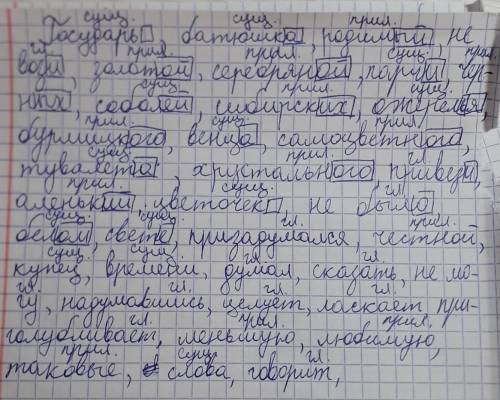 сущ. сущ. прил.
Государь, батюшка, родимый, не
гл. прил. прил. сущ. прил.
вози, золотой, серебряной, парчи, чёр-
сущ. прил. сущ.
ных, соболей, сибирских, ожерелья,
прил. сущ. прил.
бурмицкого, венца, самоцветного,
сущ. прил. гл.
тувалета, хрустального, привези,
прил. сущ. гл.
аленький, цветочек, не было
сущ. сущ. гл. прил.
белом, свете, призадумался, честной,
сущ. сущ. гл. гл.
купец, времени, думал, сказать, не мо-
гл. гл. гл. гл.
гу, надумавшись, целует, ласкает, при-
гл. прил. прил.
голубливает, меньшую, любимую,
прил. сущ. гл.
таковые, слова, говорит,